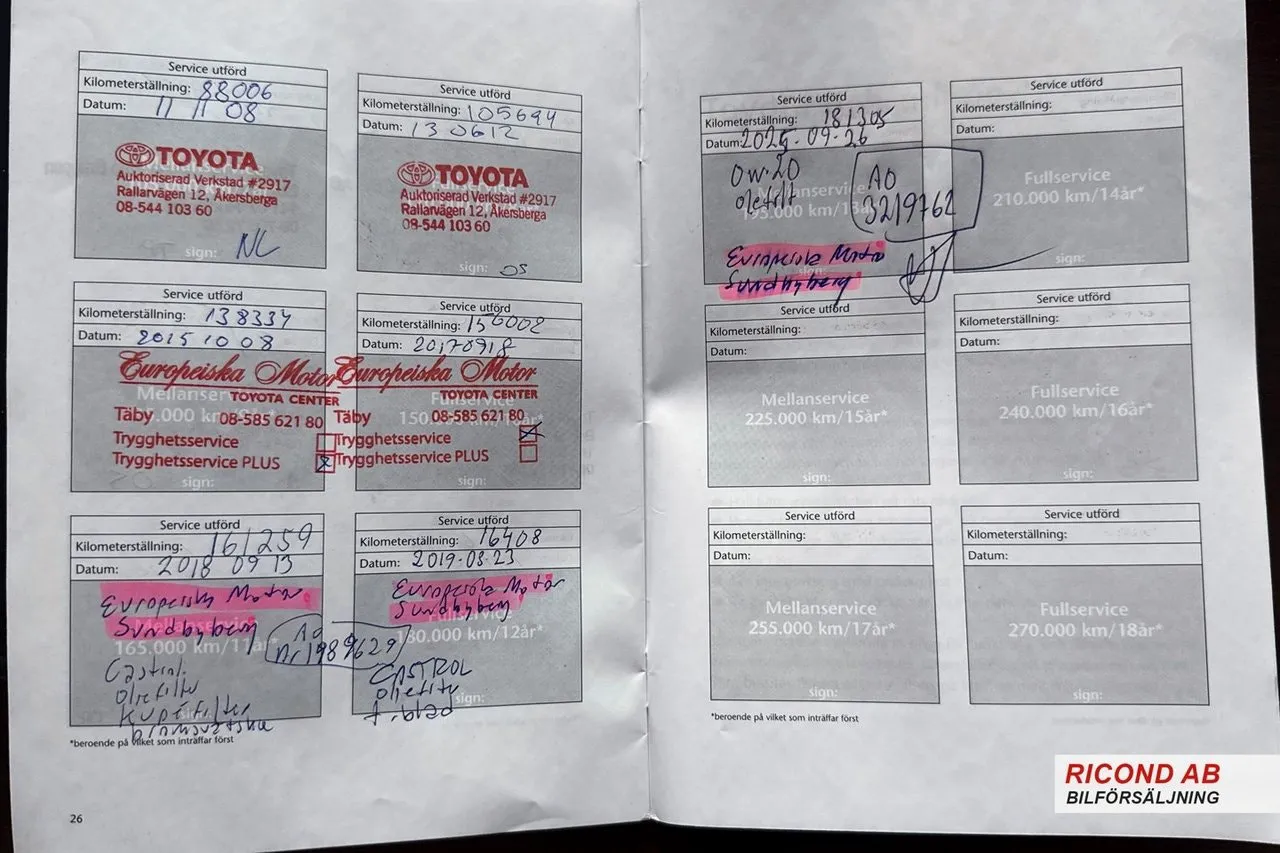 Service utförd
Kilometerställning: 88006
Datum: 11 11 08
TOYOTA
Auktoriserad Verkstad #2917
Rallarvägen 12, Åkersberga
08-544 103 60
sign: NL
Service utförd
Kilometerställning: 105694
Datum: 130612
TOYOTA
Auktoriserad Verkstad #2917
Rallarvägen 12, Åkersberga
08-544 103 60
sign:
Service utförd
Kilometerställning: 138334
Datum: 2015 10 08
Europeiska Motor
TOYOTA CENTER
Täby 08-585 621 80
Trygghetsservice
Trygghetsservice PLUS
sign:
Service utförd
Kilometerställning: 156002
Datum: 20170918
Europeiska Motor
TOYOTA CENTER
Täby 08-585 621 80
Trygghetsservice
Trygghetsservice PLUS
sign:
Service utförd
Kilometerställning: 161259
Datum: 2018 09 13
Europeiska Motor
Sundbyberg
165.000 km/11år*
AO
nr 1989629
Castrol
Oljefilter
Kupéfilter
bromsvätska
Service utförd
Kilometerställning: 16408
Datum: 2019-08-23
Europeiska Motor
Sundbyberg
Fullservice
180.000 km/12år*
CASTROL
oljefilter
sign:
*beroende på vilket som inträffar först
26
Service utförd
Kilometerställning: 181305
Datum: 2025-09-26
0W-20
oljefilt
Mellanservice
AO
3219762
Europeiska Motor
Sundbyberg
sign:
Service utförd
Kilometerställning:
Datum:
Fullservice
210.000 km/14år*
sign:
Service utförd
Kilometerställning:
Datum:
Mellanservice
225.000 km/15år*
sign:
Service utförd
Kilometerställning:
Datum:
Fullservice
240.000 km/16år*
sign:
Service utförd
Kilometerställning:
Datum:
Mellanservice
255.000 km/17år*
sign:
Service utförd
Kilometerställning:
Datum:
Fullservice
270.000 km/18år*
sign:
*beroende på vilket som inträffar först
RICOND AB
BILFÖRSÄLJNING